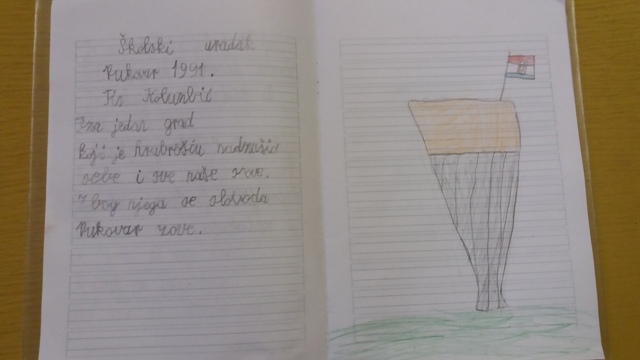 Školski uradak
Vukovar 1991.
Ima jedan grad
koji je hrabrošću nadmašio
sebe i sve naše
Zbog njega se sloboda
Vukovar zove.